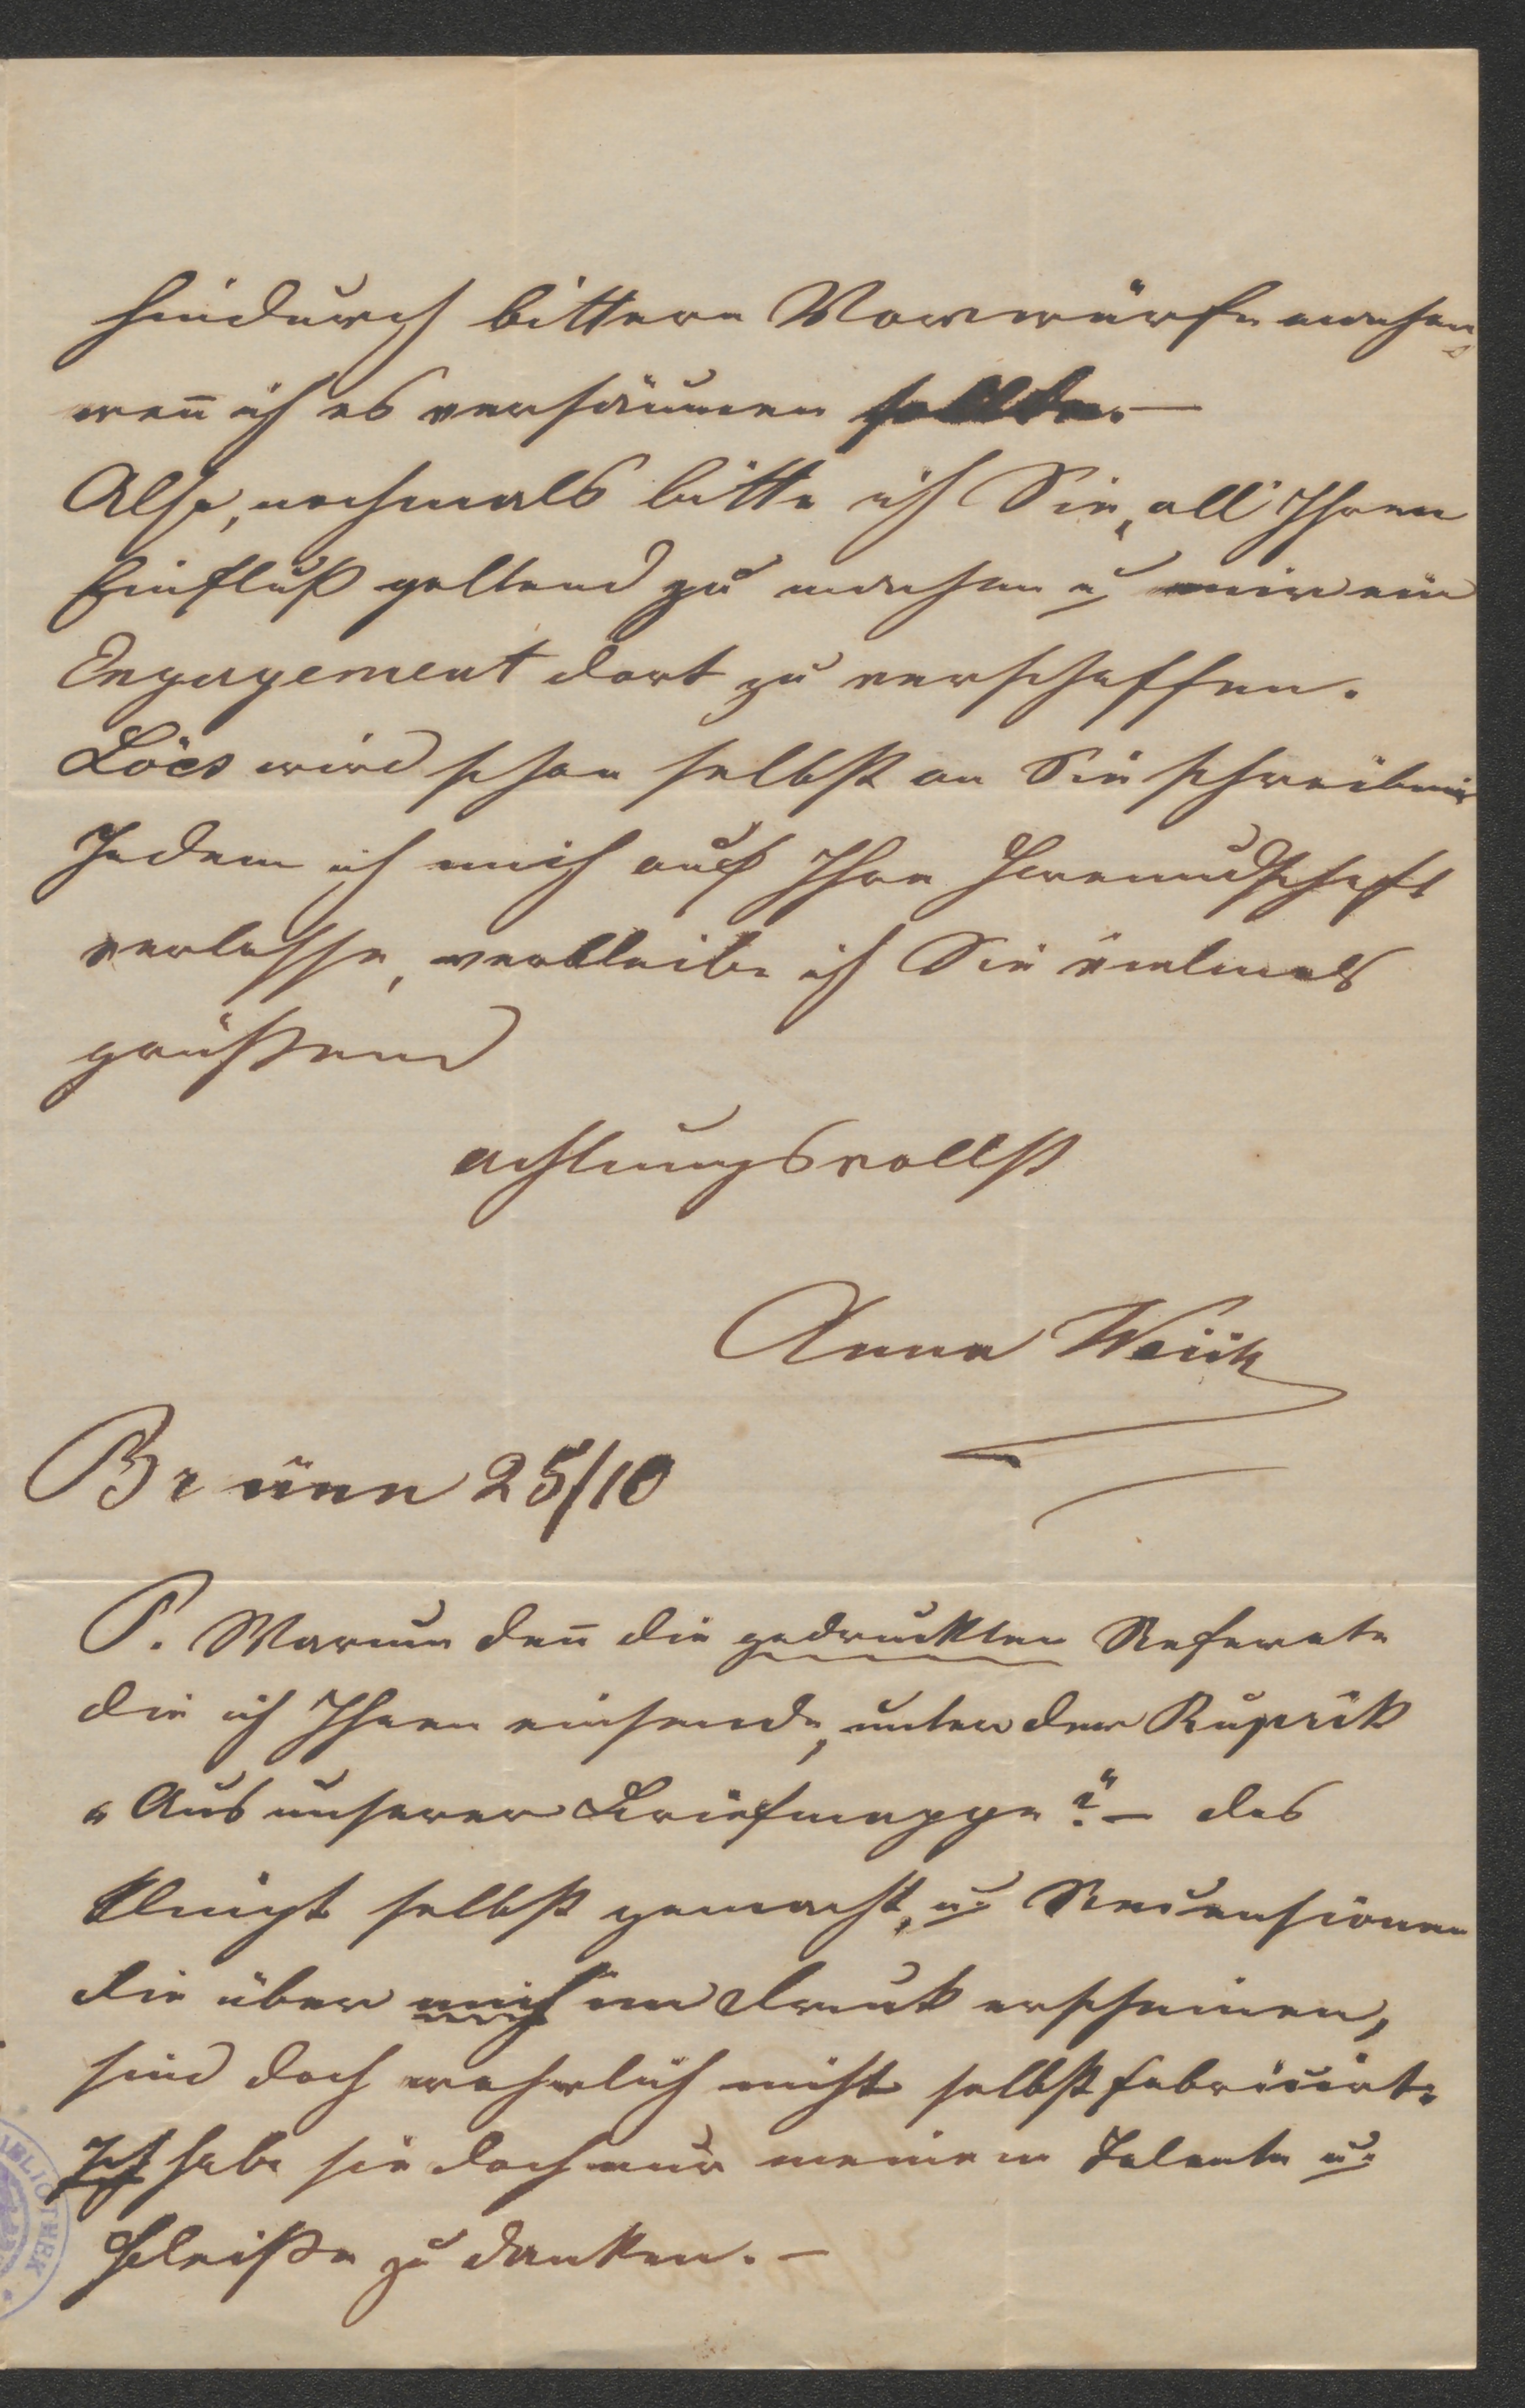 hindurch bittere Vorwürfe machen,
wen̄ ich es versäumen sollte. —
Also, nochmals bitte ich Sie, all' Ihren
Einfluß geltend zu machen u mir ein
Engagement dort zu verschaffen.
Löcs wird schon selbst an Sie schreiben
Indem ich mich auf Ihre Freundschaft
verlasse, verbleibe ich Sie vielmals
grüßend
achtungsvollst
Anna
Brünn 25/10
P. Warum den̄ die gedruckten Referate
die ich Ihnen einsende, unter der Ruprik
"Aus unserer Briefmappe?" — das
klingt selbst gemacht, u. Recensionen
die über mich im Druck erscheinen,
sind doch wahrlich nicht selbst fabricirt.
Ich habe sie doch nur meinem Talente u.
Fleiße zu danken. —
BLIOTHEK